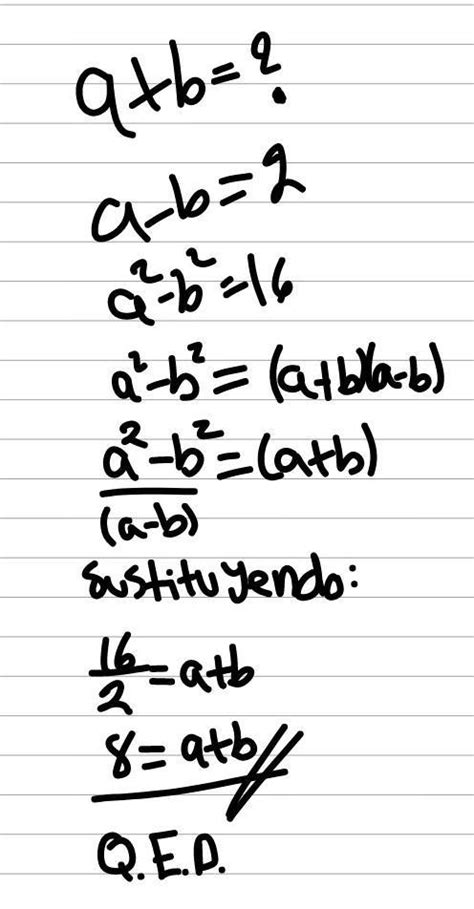 a+b=?
a-b=2
a²-b²=16
a²-b²=(a+b)(a-b)
a²-b²=(a+b)
(a-b)
sustituyendo:
16/2=a+b
8=a+b//
Q.E.D.